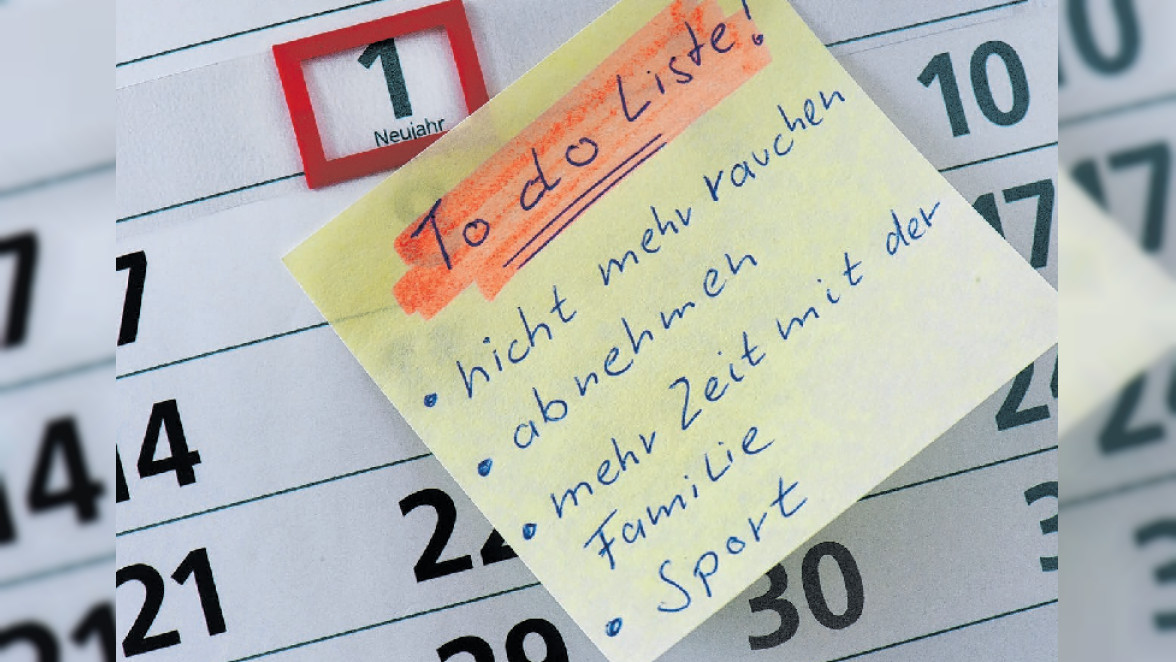 1
Neujahr
To do Liste!
• nicht mehr rauchen
• abnehmen
• mehr Zeit mit der
Familie
• Sport
10
7
17
14
21
22
29
30